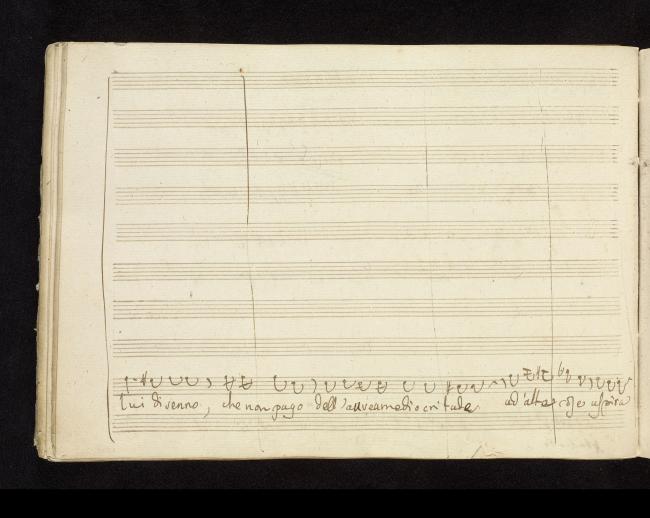 lui di senno, che non pago dell'aurea mediocritade ad alte cose aspira